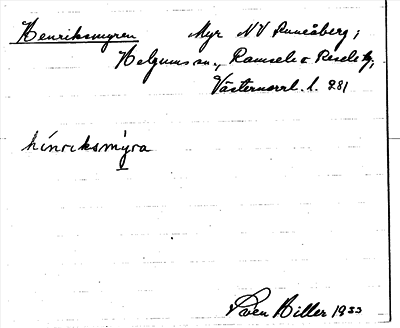 Henriksmyren Myr NV Runåberg;
Helgums sn., Ramsele o Resele tg,
Västernorrl. l. 281
hínriksmỳra
Sven Hiller 1933